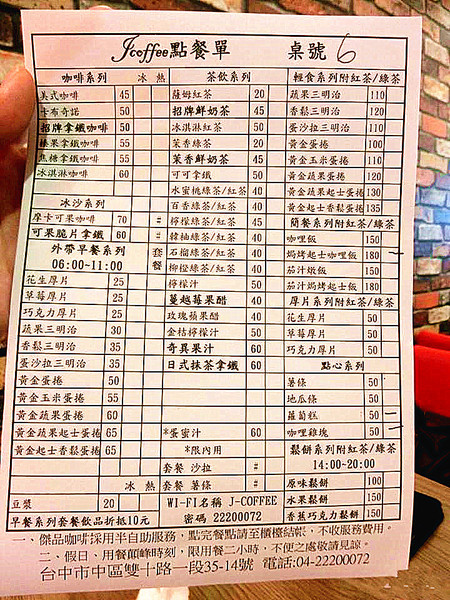 Jcoffee點餐單 桌號 6
咖啡系列 冰 熱
美式咖啡 45
卡布奇諾 50
招牌拿鐵咖啡 50
榛果拿鐵咖啡 55
焦糖拿鐵咖啡 55
冰淇淋咖啡 60
冰沙系列
摩卡可果咖啡 70 #
可果脆片拿鐵 60 #
外帶早餐系列
06:00-11:00
套餐
花生厚片 25
草莓厚片 25
巧克力厚片 25
蔬果三明治 30
香鬆三明治 35
蛋沙拉三明治 35
黃金蛋捲 50
黃金玉米蛋捲 55
黃金蔬果蛋捲 60
黃金蔬果起士蛋捲 65
黃金起士香鬆蛋捲 65
冰 熱
豆漿 20
早餐系列套餐飲品折抵10元
茶飲系列
薩姆紅茶 20
招牌鮮奶茶 45
冰淇淋紅茶 50
茉香綠茶 20
茉香鮮奶茶 45
可可拿鐵 50
水蜜桃綠茶/紅茶 40
百香綠茶/紅茶 40
檸檬綠茶/紅茶 45
韓柚綠茶/紅茶 40
石榴綠茶/紅茶 40
柳橙綠茶/紅茶 40
檸檬汁 50
蔓越莓果醋 40
玫瑰蘋果醋 40
金桔檸檬汁 50
奇異果汁 60
日式抹茶拿鐵 60
*蛋蜜汁 60
*限內用
套餐 沙拉 #
套餐 薯條 #
WI-FI名稱 J-COFFEE
密碼 22200072
輕食系列附紅茶/綠茶
蔬果三明治 110
香鬆三明治 120
蛋沙拉三明治 110
黃金蛋捲 100
黃金玉米蛋捲 110
黃金蔬果蛋捲 120
黃金蔬果起士蛋捲 130
黃金起士香鬆蛋捲 135
簡餐系列附紅茶/綠茶
咖哩飯 150
焗烤起士咖哩飯 180
茄汁燉飯 150
茄汁焗烤起士飯 180
厚片系列附紅茶/綠茶
花生厚片 50
草莓厚片 50
巧克力厚片 50
點心系列
薯條 50
地瓜條 50
蘿蔔糕 50
咖哩雞塊 50
鬆餅系列附紅茶/綠茶
14:00~20:00
原味鬆餅 100
水果鬆餅 150
香蕉巧克力鬆餅 150
一、傑品咖啡採用半自助服務，點完餐點請至櫃檯結帳，不收服務費用。
二、假日、用餐顛峰時刻，限用餐二小時，不便之處敬請見諒。
台中市中區雙十路一段35-14號 電話:04-22200072